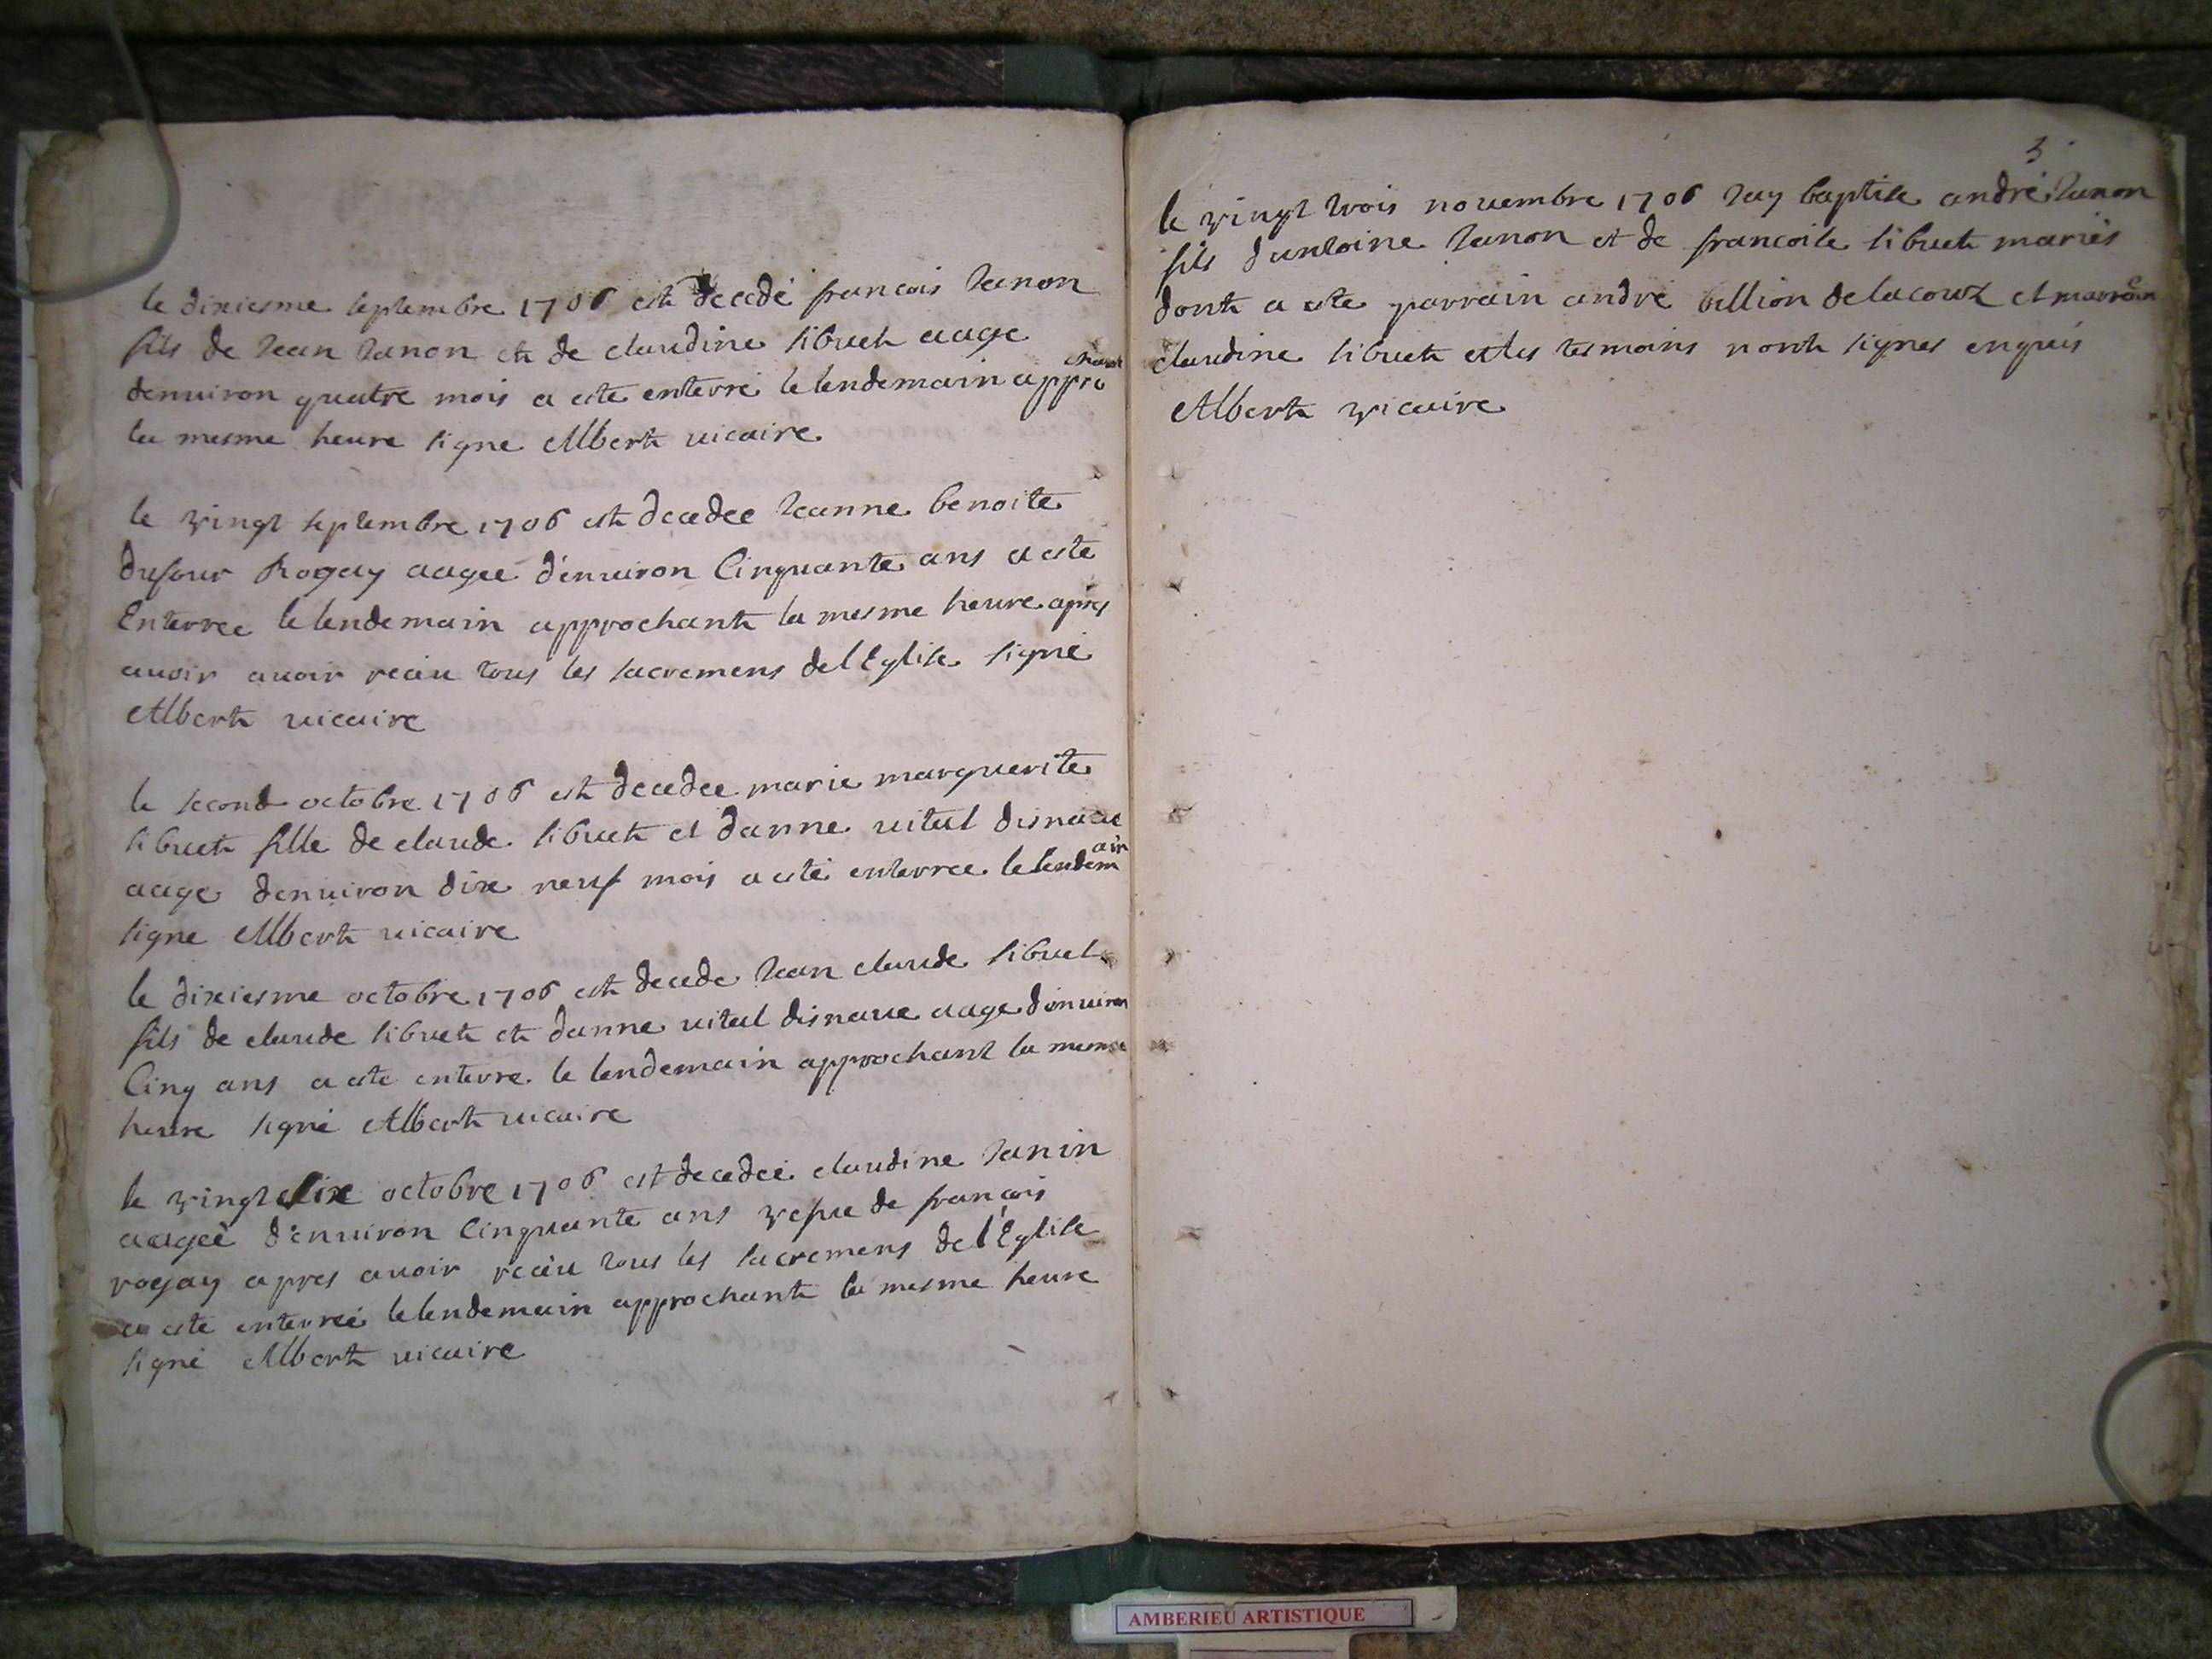 le dixiesme septembre 1706 est decedé francois Janon
fils de Jean Janon et de claudine sibuet aage
denuiron quatre mois a este enterré le lendemain approchant
la mesme heure signe Albert uicaire
le vingt septembre 1706 est decedee Jeanne benoite
dufour Rogay aagee d'enuiron Cinquante ans a este
Enterree le lendemain approchant la mesme heure apres
auoir auoir receu tous les sacremens de l'Eglise signé
Albert uicaire
le second octobre 1706 est decedee marie marguerite
sibuet fille de claude sibuet et danne uital
aage denuiron dix neuf mois a esté enterree le lendemain
signe Albert uicaire
le dixiesme octobre 1706 est decede Jean claude sibuet
fils de claude sibuet et danne uital aage d'enuiron
Cinq ans a este enterre le lendemain approchant la mesme
heure signé Albert uicaire
le vingt six octobre 1706 est decedeé claudine Janin
aageé d'enuiron Cinquante ans vefue de françois
rogay apres auoir receu tous les sacremens de l'Eglise
a este enterreé le lendemain approchant la mesme heure
signé Albert uicaire
3
le vingt trois nouembre 1706 Jay baptise andré Janon
fils d'antoine Janon et de francoise sibuet mariés
dont a este parrain andré billion de lacour et marraine
claudine sibuet et les tesmoins nont signes enquis
Albert vicaire
AMBERIEU ARTISTIQUE